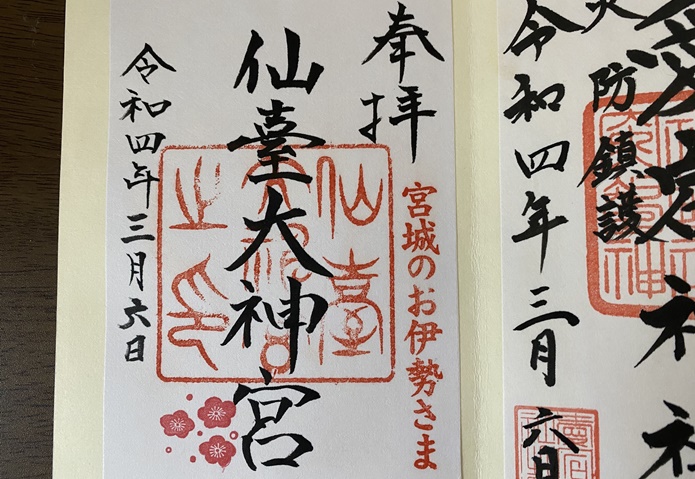 火防鎮護
令和四年三月六日
奉拝
宮城のお伊勢さま
仙臺大神宮
仙臺
之印
令和四年三月六日